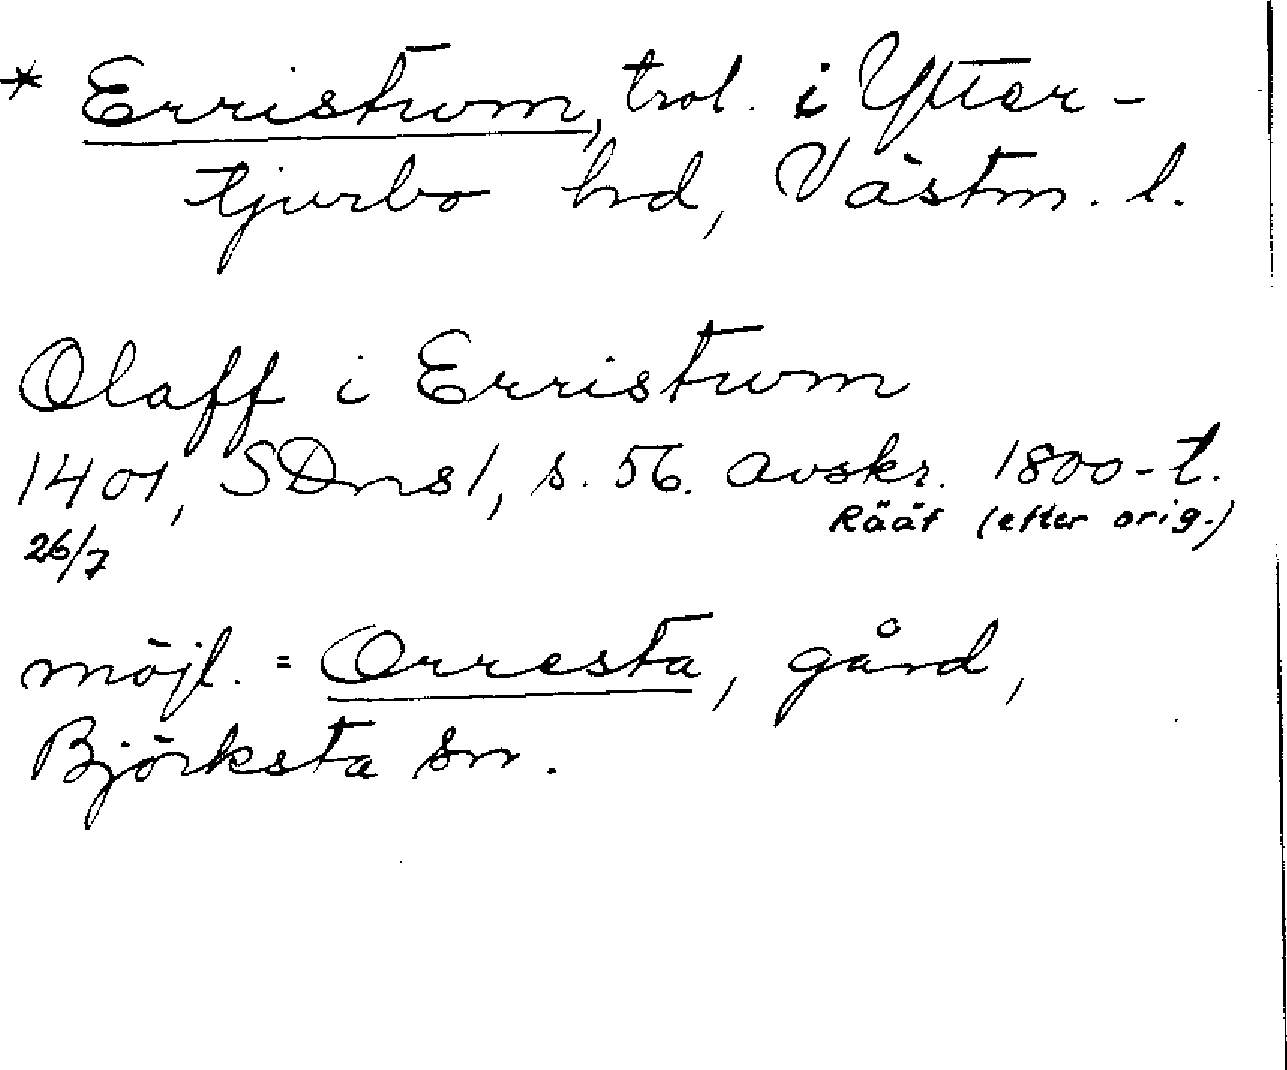 * Erristwm, trol. i Ytter-
tjurbo hd, Västm. l.
Olaff i Erristwm
1401, SDns1, s. 56. avskr. 1800-t.
26/7 Rääf (efter orig.)
möjl. = Orresta, gård,
Björksta sn.